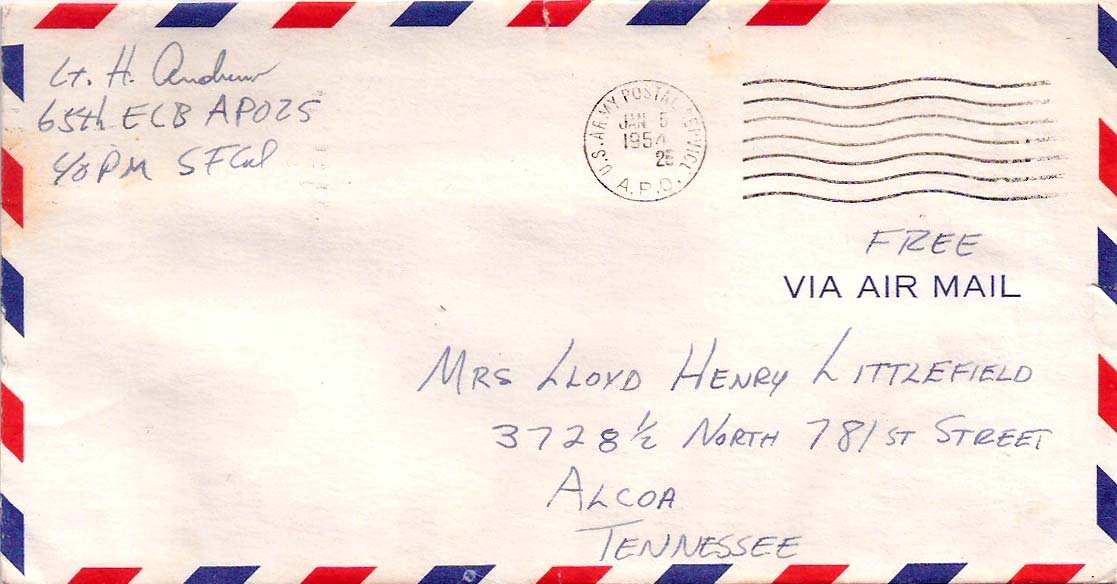 Lt. H. Andrews
65th ECB APO25
c/o PM SFCal
U.S. ARMY POSTAL SERVICE
JAN 5
1954
25
A.P.O.
FREE
VIA AIR MAIL
MRS LLOYD HENRY LITTLEFIELD
3728 1/2 NORTH 781ST STREET
ALCOA
TENNESSEE